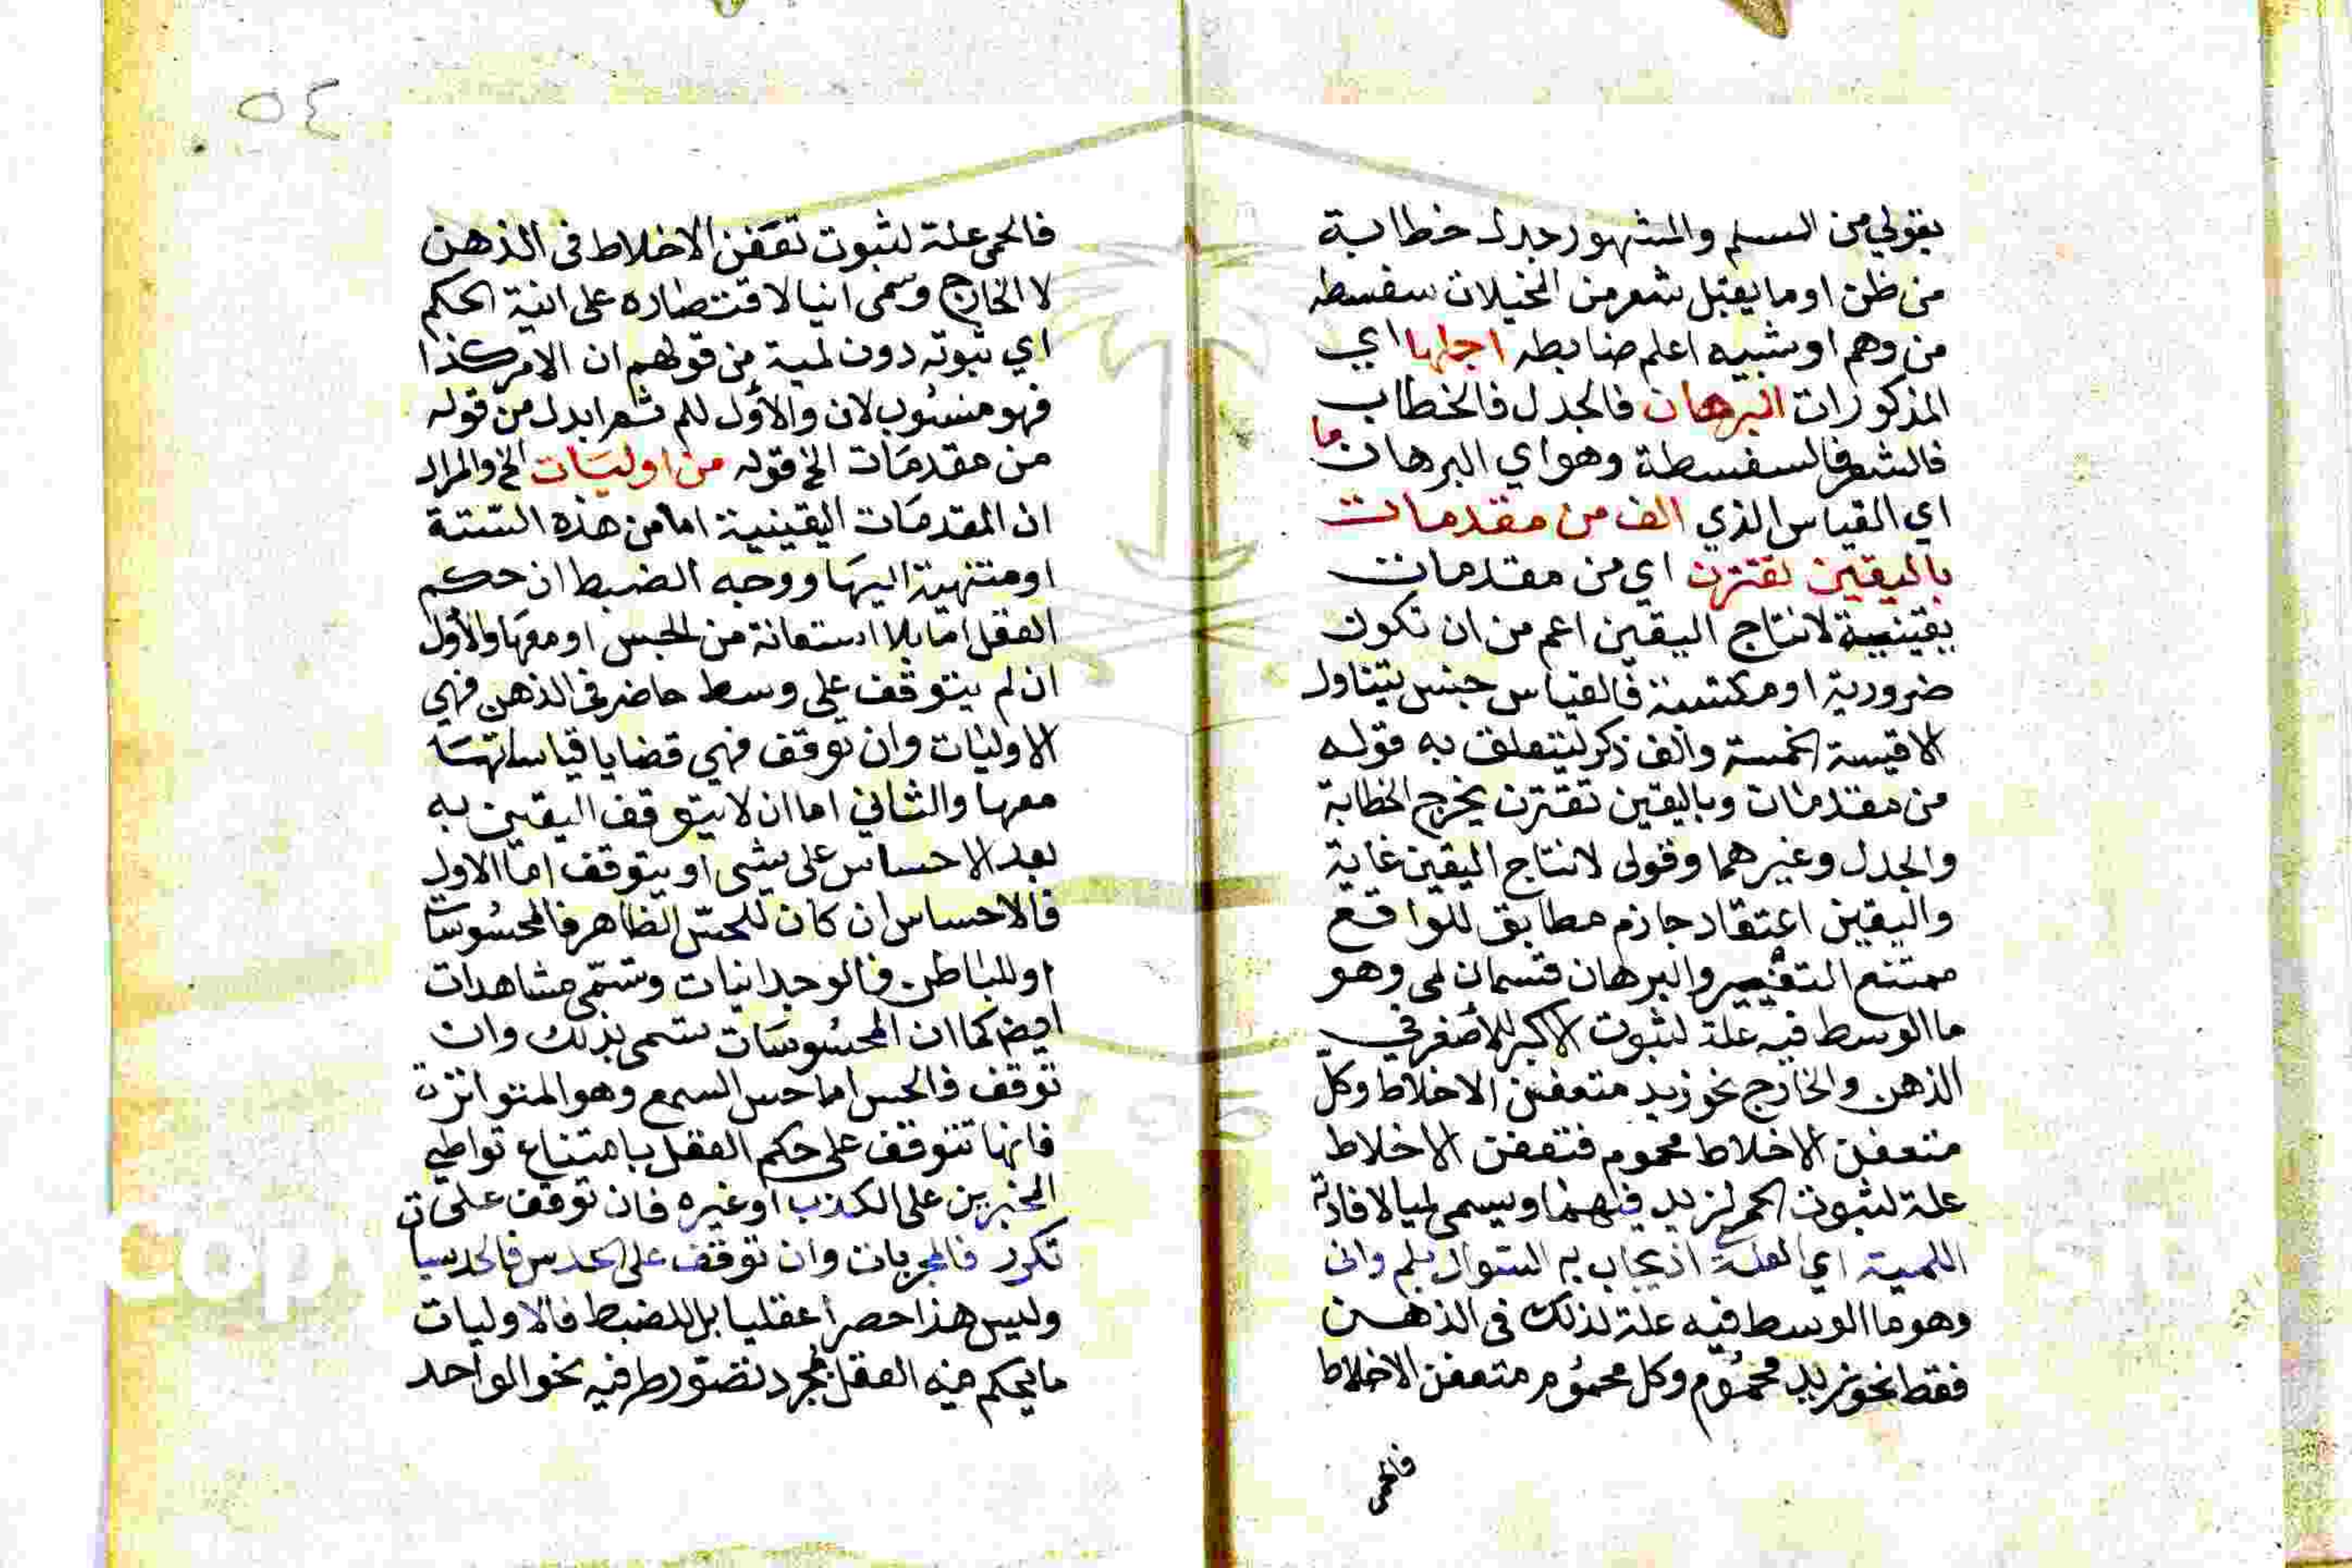 بقولي من المسلم والمشهور جدل خطابة
من ظن او ما يقبل شعر من المخيلات سفسطه
من وهم او شبيه اعلم ضابطه اجلها اي
المذكورات البرهان فالجدل فالخطاب
فالشعر فالسفسطة وهو اي البرهان ما
اي القياس الذي الف من مقدمات
باليقين تقترن اي من مقدمات
يقينية لانتاج اليقين اعم من ان تكون
ضرورية او مكتسبة فالقياس جنس يتناول
الاقيسة الخمسة والف ذكر ليتعلق به قوله
من مقدمات وباليقين تقترن يخرج الخطابة
والجدل وغيرهما وقولي لانتاج اليقين غاية
واليقين اعتقاد جازم مطابق للواقع
ممتنع التغيير والبرهان قسمان لمي وهو
ما الوسط فيه علة لثبوت الاكبر للأصغر في
الذهن والخارج نحو زيد متعفن الاخلاط وكلّ
متعفن الاخلاط محموم فتعفن الاخلاط
علة لثبوت الحمى لزيد فيهما ويسمى لميا لافادته
اللمية اي العلة اذ يجاب به السوال بلم واني
وهو ما الوسط فيه علة لذلك في الذهن
فقط نحو زيد محموم وكل محموم متعفن الاخلاط
فالحمى
٥٤
فالحمى علة لثبوت تعفن الاخلاط في الذهن
لا الخارج وسمى انيا لاقتصاره على انية الحكم
اي ثبوته دون لمية من قولهم ان الامر كذا
فهو منسوب لان والأول للم ثم ابدل من قوله
من مقدمات الخ قوله من اوليات الخ والمراد
ان المقدمات اليقينية اما من هذه الستة
او منتهية اليها ووجه الضبط ان حكم
العقل اما بلا استعانة من الحس او معها والأول
ان لم يتوقف على وسط حاضر في الذهن فهي
الاوليات وان توقف فهي قضايا قياساتها
معها والثاني اما ان لا يتوقف اليقين به
بعد الاحساس على شي او يتوقف اما الاول
فالاحساس ان كان للحسّ الظاهر فالمحسوسات
او للباطن فالوجدانيات وتسمّى مشاهدات
ايض كما ان المحسوسات تسمى بذلك وان
توقف فالحس اما حس السمع وهو المتواترة
فانها تتوقف على حكم العقل بامتناع تواطي
المخبرين على الكذب او غيره فان توقف على
تكرر فالمجربات وان توقف على الحدس فالحدسيات
وليس هذا حصرا عقليا بل للضبط فالاوليات
ما يحكم فيه العقل بمجرد تصوّر طرفيه نحو الواحد